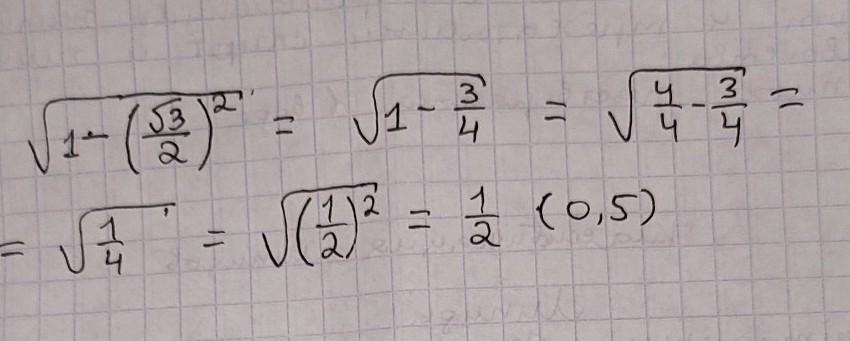 √(1-(√3/2)²) = √(1-3/4) = √(4/4-3/4) =
= √(1/4) = √((1/2)²) = 1/2 (0,5)